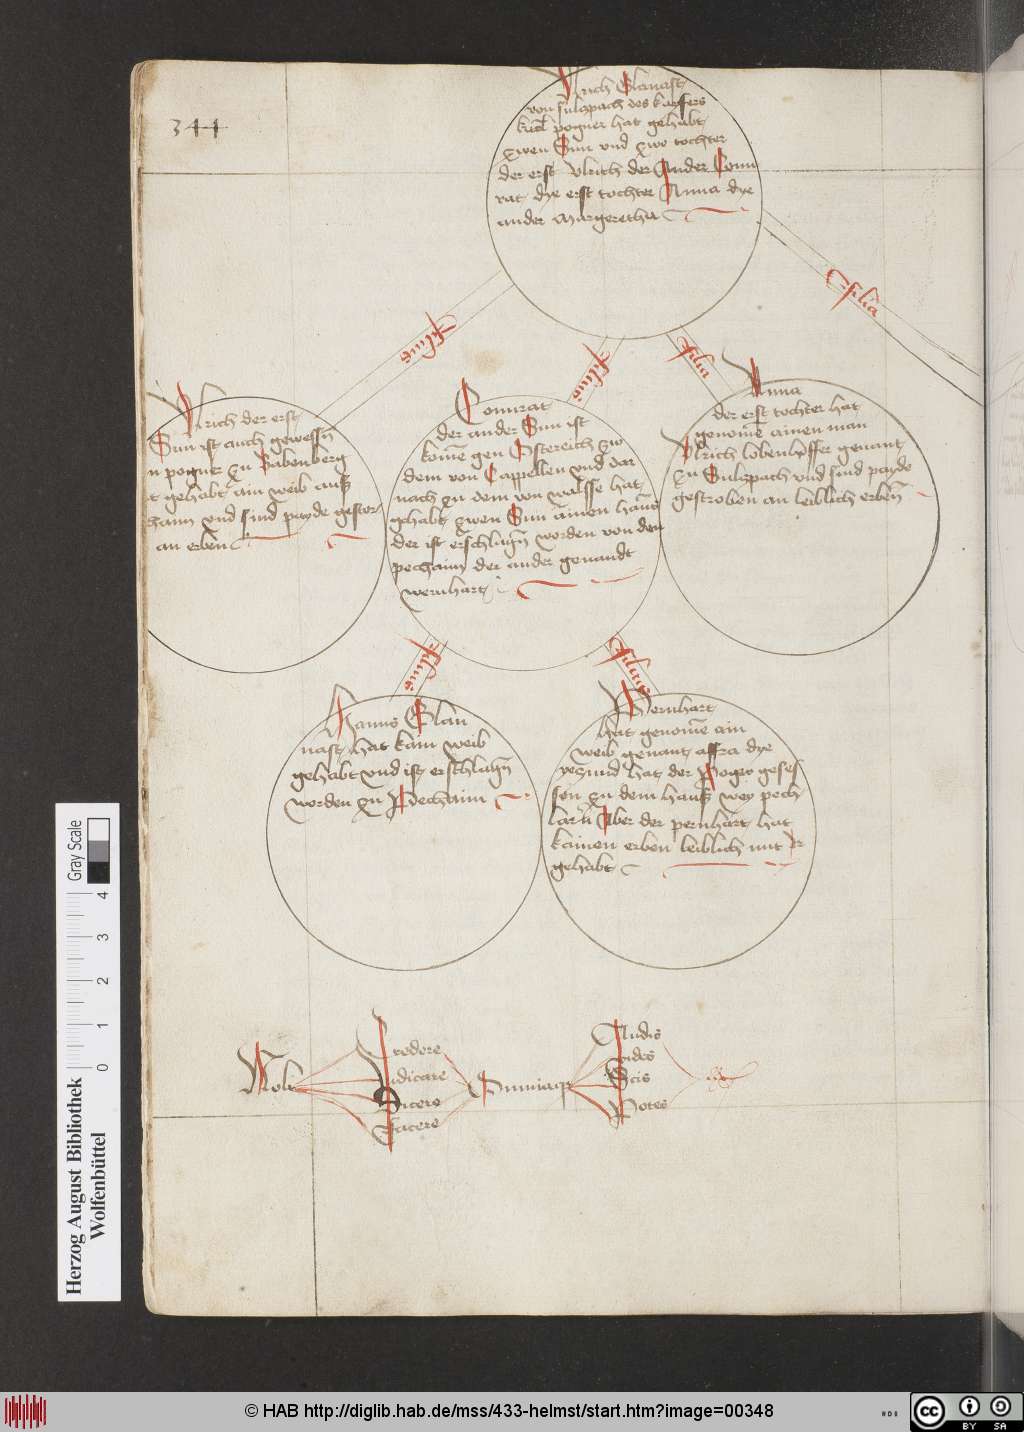 344
Vlrich Glanast
von Sulzpach des kaysers
kuchl pogner hat gehabt
zwen Sun vnd zwo tochter
der erst Vlrich der Ander Conn
rat dye erst tochter Anna dye
ander Margeretha
filius
filius
filia
filia
Vlrich der erst
Sun ist auch gewessn̄
n pogner zu Babenberg
t gehabt ain weib aus
haim vnd sind payde gestor
an erben
Connrat
der ander Sun ist
kom̄e gen Ostereich zw
dem von Cappellen vnd dar
nach zu dem von walsse hat
gehabt zwen Sun ainen hanns
der ist erschlagn̄ worden von den
pechaim der ander genandt
wernhart
Anna
der erst tochter hat
genom̄e ainen man
Vlrich lobenhoffer genant
zu Sulzpach vnd sind payde
gestroben an leiblich erben̄
filius
filius
Hanns Glan
nast hat kain weib
gehabt vnd ist erschlagn̄
worden zu Pechaim
Wernhart
hat genom̄e ain
weib genant affra dye
yezund hat der Poger geses
sen zu dem hauss wey pech
larn̄ Aber der pernhart hat
kainen erben leiblich mit Ir
gehabt
Noli
Credere
Iudicare
Dicere
Facere
Omniaque
Audis
vides
Scis
Potes
Herzog August Bibliothek
Wolfenbüttel
0 1 2 3 4
Gray Scale
© HAB http://diglib.hab.de/mss/433-helmst/start.htm?image=00348
cc BY SA